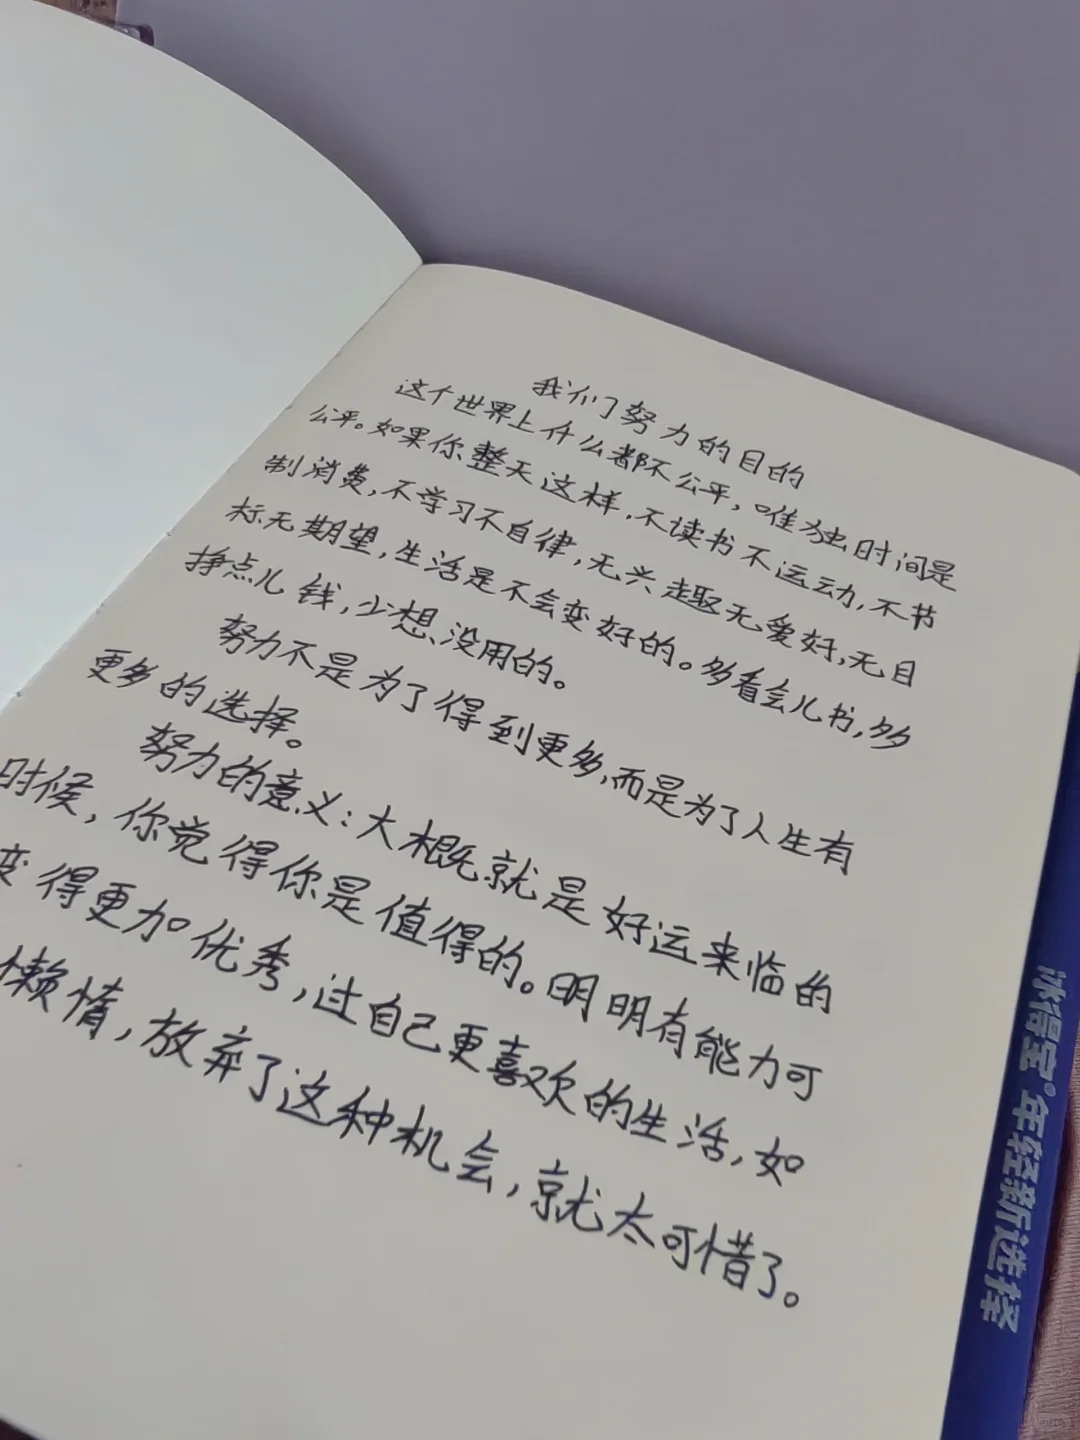 我们努力的目的
这个世界上什么都不公平，唯独时间是
公平。如果你整天这样，不读书不运动，不节
制消费，不学习不自律，无兴趣无爱好，无目
标无期望，生活是不会变好的。多看会儿书，多
挣点儿钱，少想没用的。
努力不是为了得到更多，而是为了人生有
更多的选择。
努力的意义：大概就是好运来临的
时候，你觉得你是值得的。明明有能力可
变得更加优秀，过自己更喜欢的生活，如
懒惰，放弃了这种机会，就太可惜了。
年轻新选择